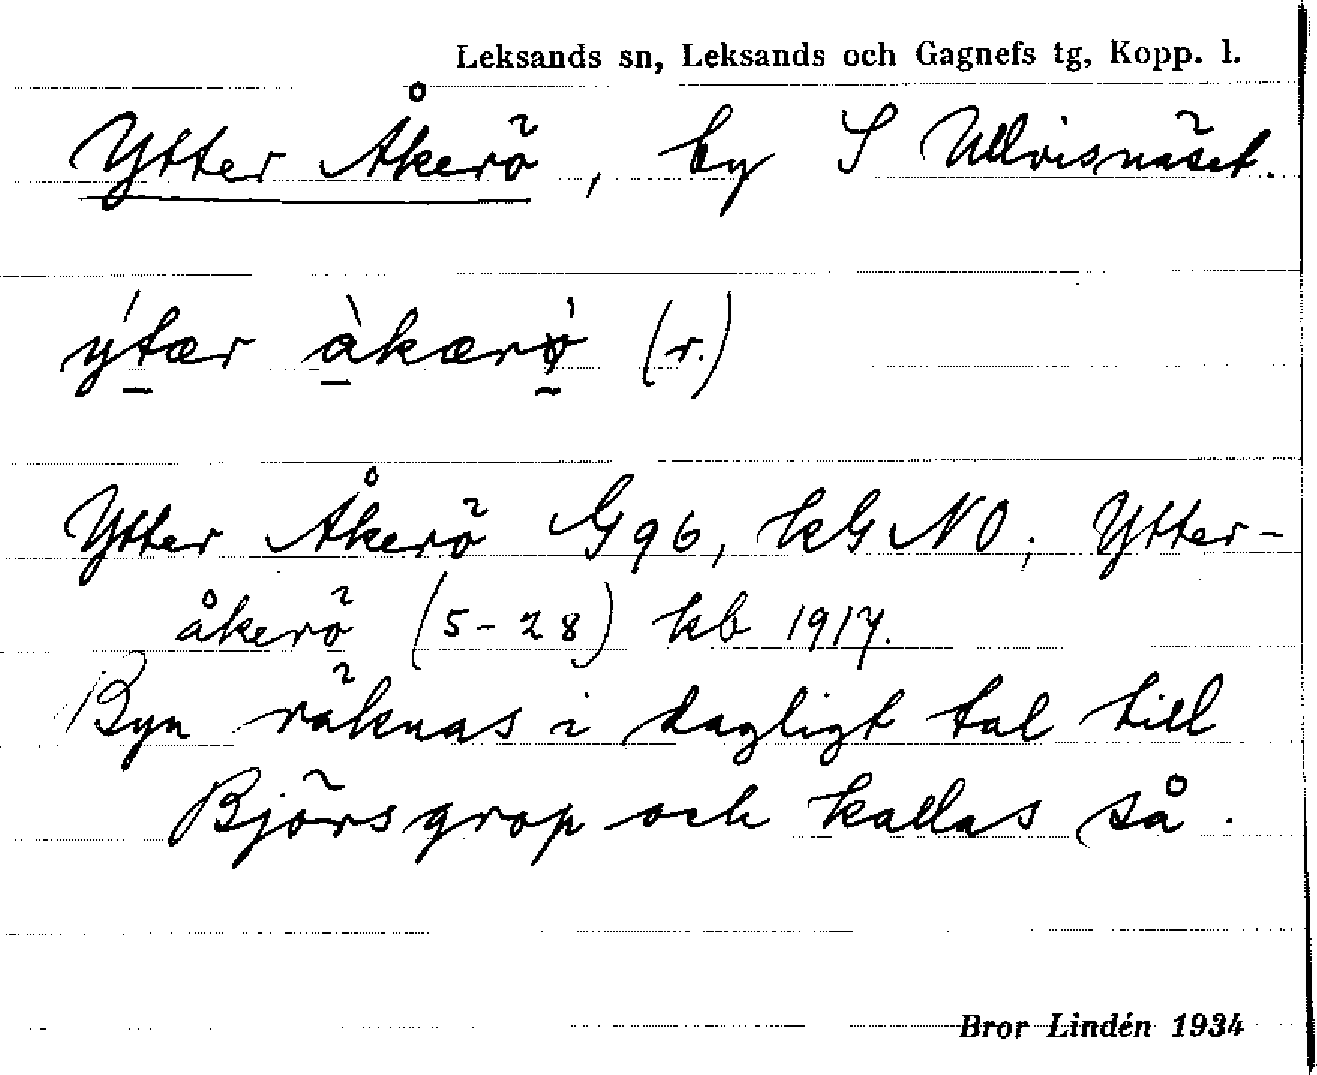 Leksands sn, Leksands och Gagnefs tg, Kopp. l.
Ytter Åkerö, by S Ullvisnäset.
ýtær àkærø̀ (r.)
Ytter Åkerö G96, kG NO; Ytter-
åkerö (5-28) kb 1917.
Byn räknas i dagligt tal till
Björsgrop och kallas så.
Bror Lindén 1934